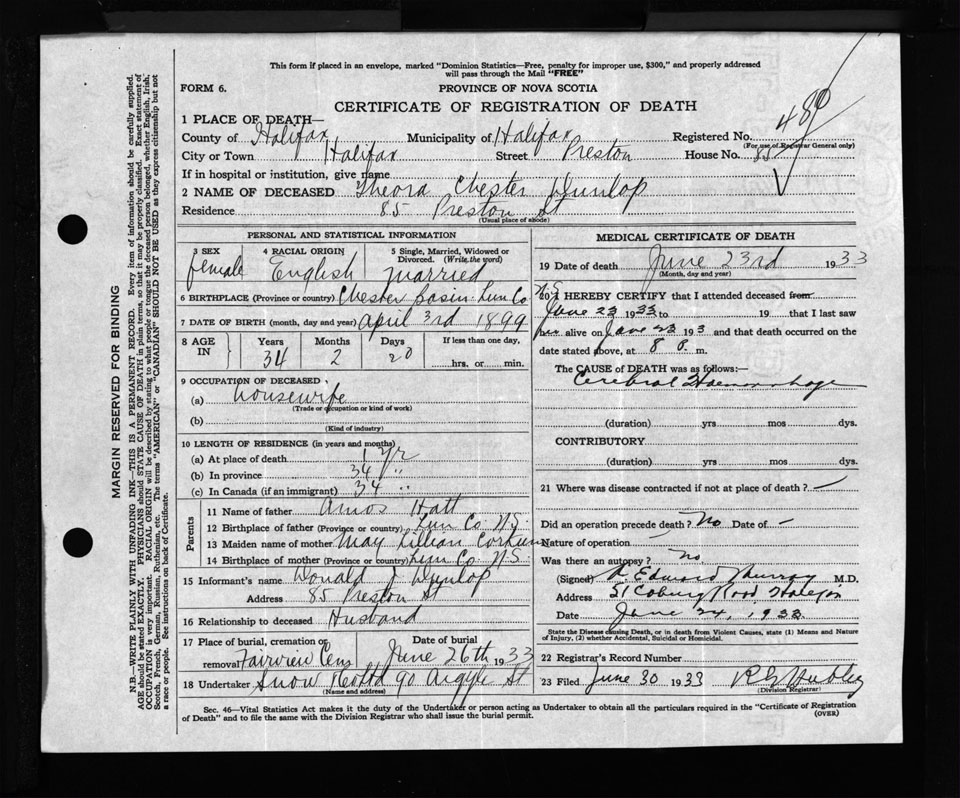 This form if placed in an envelope, marked "Dominion Statistics—Free, penalty for improper use, $300," and properly addressed
will pass through the Mail "FREE"
FORM 6.
PROVINCE OF NOVA SCOTIA
CERTIFICATE OF REGISTRATION OF DEATH
1 PLACE OF DEATH—
County of Halifax Municipality of Halifax Registered No.
(For use of Registrar General only)
City or Town Halifax Street Preston House No. 85
If in hospital or institution, give name
2 NAME OF DECEASED Theora Chester Dunlop
Residence 85 Preston St
(Usual place of abode)
PERSONAL AND STATISTICAL INFORMATION
3 SEX 4 RACIAL ORIGIN 5 Single, Married, Widowed or
Divorced. (Write the word)
female English married
6 BIRTHPLACE (Province or country) Chester Basin Lun Co N.S.
7 DATE OF BIRTH (month, day and year) April 3rd 1899
8 AGE IN Years Months Days If less than one day,
34 2 20 hrs. or min.
9 OCCUPATION OF DECEASED
(a) housewife
(Trade or occupation or kind of work)
(b)
(Kind of industry)
10 LENGTH OF RESIDENCE (in years and months)
(a) At place of death 1 yr
(b) In province 34 "
(c) In Canada (if an immigrant) 34 "
Parents
11 Name of father Amos Hatt
12 Birthplace of father (Province or country) Lun Co N.S.
13 Maiden name of mother May Lillian Corkum
14 Birthplace of mother (Province or country) Lun Co N.S.
15 Informant's name Donald J Dunlop
Address 85 Preston St
16 Relationship to deceased Husband
17 Place of burial, cremation or Date of burial
removal Fairview Cem June 26th 1933
18 Undertaker Snow 90 Argyle St
(Name and address)
MEDICAL CERTIFICATE OF DEATH
19 Date of death June 23rd 1933
(Month, day and year)
20 I HEREBY CERTIFY that I attended deceased from
June 23 1933 to 19 that I last saw
her alive on June 23 193 and that death occurred on
date stated above, at 8 m.
The CAUSE of DEATH was as follows:—
Cerebral Haemorrhage
(duration) yrs mos dys.
CONTRIBUTORY
(duration) yrs mos dys.
21 Where was disease contracted if not at place of death? —
Did an operation precede death? No Date of —
Nature of operation —
Was there an autopsy? no.
(Signed) A. Edward Murray M.D.
Address 51 Coburg Road Halifax
Date June 24, 1933
State the Disease causing Death, or in death from Violent Causes, state (1) Means and Nature
of Injury, (2) whether Accidental, Suicidal or Homicidal.
22 Registrar's Record Number
23 Filed June 30 1933
(Division Registrar)
Sec. 46—Vital Statistics Act makes it the duty of the Undertaker or person acting as Undertaker to obtain all the particulars required in the "Certificate of Registration
of Death" and to file the same with the Division Registrar who shall issue the burial permit. (OVER)
MARGIN RESERVED FOR BINDING
N.B.—WRITE PLAINLY WITH UNFADING INK—THIS IS A PERMANENT RECORD. Every item of information should be carefully supplied.
AGE should be stated EXACTLY. PHYSICIANS should STATE CAUSE OF DEATH in plain terms, so that it may be properly classified. Exact statement of
OCCUPATION is very important. RACIAL ORIGIN will be described by stating to what people or tongue the deceased person belonged, whether English, Irish,
Scotch, French, German, Russian, Ruthenian, etc. The terms "AMERICAN" or "CANADIAN" SHOULD NOT BE USED as they express citizenship but not
a race or people. See instructions on back of Certificate.